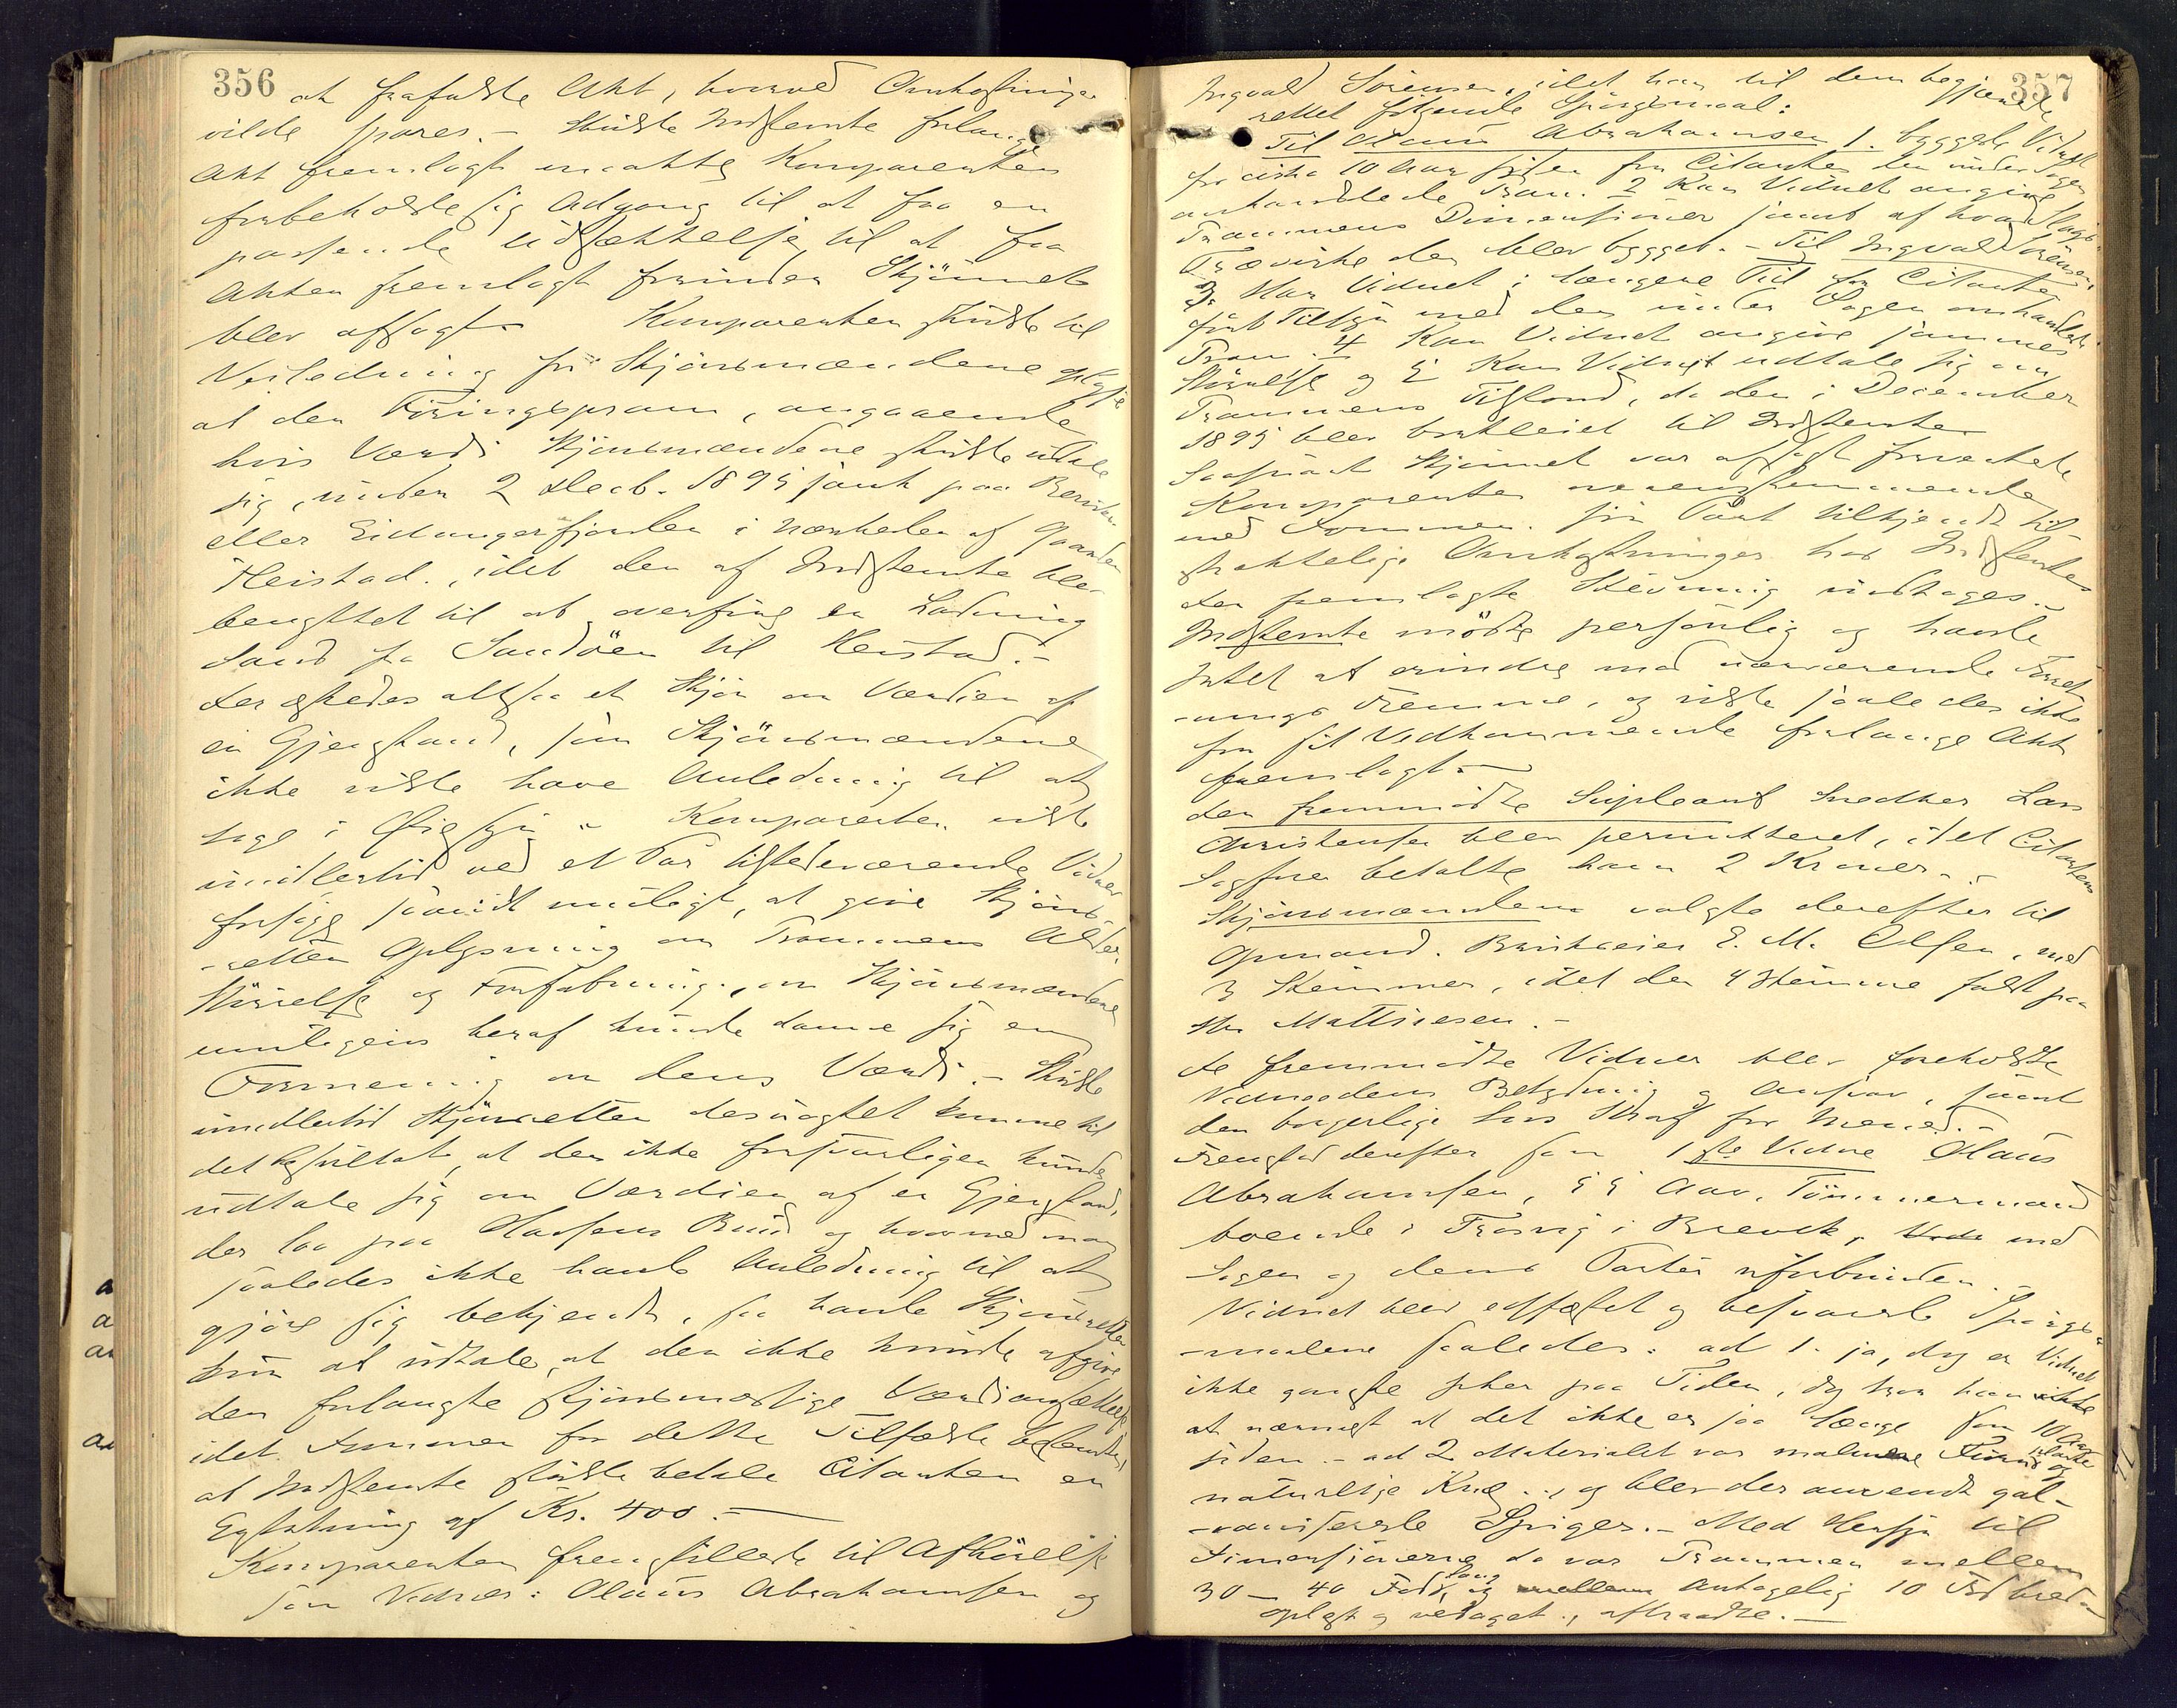 356
at frafalde Akt, hvorved Omkostninger
vilde spares. – Skulde Indstevnte forlange
Akt fremlagt maatte Komparenten
forbeholde sig Adgang til at faa en
passende Udsættelse til at faa
Akten fremlagt forinden Skjönnet
blev afsagt. Komparenten skulde til
Veiledning for Skjönsmændene oplyse
at den Föringspram, angaaende
hvis Værdi Skjönsmændene skulde udtale
sig, under 2 Decb. 1895 sank paa
eller Eidangerfjorden i Nærheden af Gaarden
Heistad, idet den af Indstevnte blev
benyttet til at overføre en Ladning
Sand fra Sandöen til Heistad. –
Der æskedes altsaa et Skjön om Værdien af
en Gjenstand, som Skjönsmændene
ikke vilde have Anledning til at
tage i Øiesyn. Komparenten vilde
imidlertid ved et Par tilstedeværende Vidner
forsøge saavidt muligt, at give Skjöns-
-retten Oplysning om Prammens Alder,
Störrelse og Forfatning, om Skjönsmændene
muligens heraf kunde danne sig en
Formening om dens Værdi. – Skulde
imidlertid Skjönsretten desuagtet komme til
det Resultat, at den ikke forsvarligen kunde
udtale sig om Værdien af en Gjenstand,
der laa paa Havsens Bund og hvormed man
saaledes ikke havde Anledning til at
gjöre sig bekjendt, saa havde Skjönsretten
kun at udtale, at den ikke kunde afgive
den forlangte skjönsmæssige Værdiansættelse
idet Dommen for dette Tilfælde bestemte,
at Indstevnte skulde betale Citanten en
Erstatning af Kr. 400. –
Komparenten fremstillede til Afhörelse
som Vidner: Olaus Abrahamsen og
357
Ingvald Sörensen, idet han til dem begjærede
rettet fölgende Spörgsmaal:
Til Olaus Abrahamsen 1. byggede Vidnet
for cirka 10 Aar siden for Citanten den under Sagen
omhandlede Pram. 2 Kan Vidnet angive
Prammens Dimensioner samt af hvad Slags
Trævirke den blev bygget. – Til Ingvald Sörensen,
3. Har Vidnet i længere Tid for Citanten
fört Tilsyn med den under Sagen omhandlede
Pram. 4 Kan Vidnet angive sammes
Störrelse og 5 Kan Vidnet udtale sig om
Prammens Tilstand, da den i December
1895 blev bortleiet til Indstevnte
Saasnart Skjönnet var afsagt forventede
Komparenten overensstemmende
med Dommen. sin Part tilkjendt til
Omkostninger hos Indstevnte
Den fremlagte Stevning indtages. –
Indstevnte mödte personlig og havde
Intet at erindre mod nærværende Forret-
-nings Fremme, og vilde saaledes ikke
for sit Vedkommende forlange Akt
fremlagt. –
Den fremmödte Supleant Snedker Lars
Christensen blev permitteret, idet Citantens
Sagfører betalte ham 2 Kroner. –
Skjönsmændene valgte derefter til
Opmand. Brukseier E. M. Olsen, med
3 Stemmer, idet den 4 Stemme faldt paa
Hr Mathiesen. –
De fremmödte Vidner blev foreholdte
Vidneedens Betydning og Ansvar, samt
den borgerlige Lovs Straf for Mened. –
Fremstod derefter som 1ste Vidne Olaus
Abrahamsen, 55 Aar, Tömmermand
boende i Trosvig i Brevik, med
Sagen og dens Parter uforbunden
Vidnet blev edfæstet og besvarede Spörgs-
-maalene saaledes: ad 1. ja, dog er Vidnet
ikke ganske sikker paa Tiden, dog tror han ikke
at nærmest at det ikke er saa længe som 10 Aar
siden. – ad 2 Materialet var malmne Furuplanke og
naturlige Knæ., og blev der anvendt gal-
-vaniserede Spiger. – Med Hensyn til
Dimensionerne da var Prammen mellem
30 – 40 Fod lang, og mellem antagelig 10 Fod bred
Oplæst og vedtaget., aftraadte. –